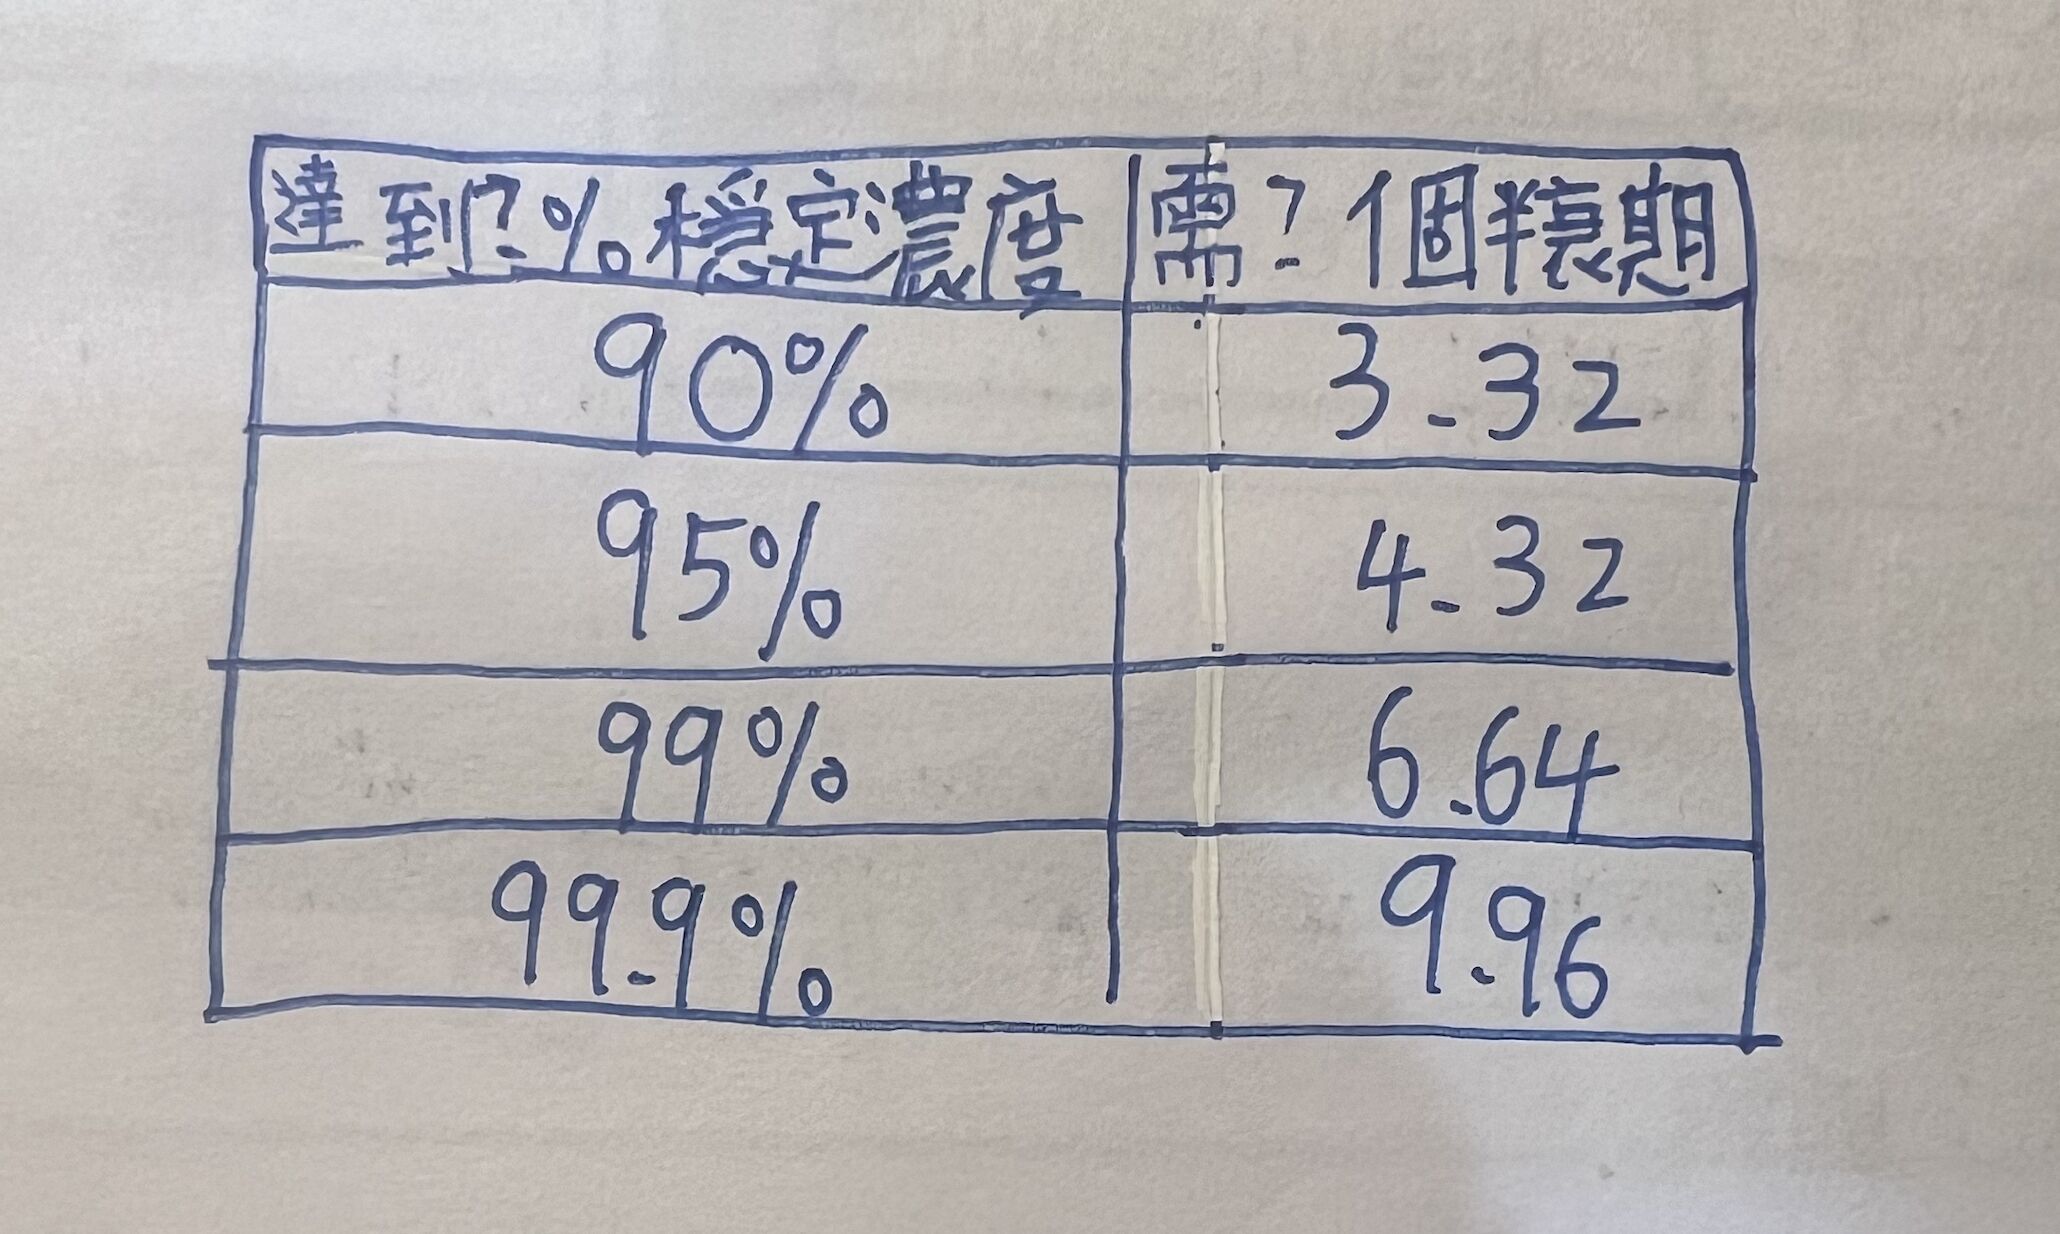 達到?%穩定濃度 需?個半衰期
90% 3.32
95% 4.32
99% 6.64
99.9% 9.96